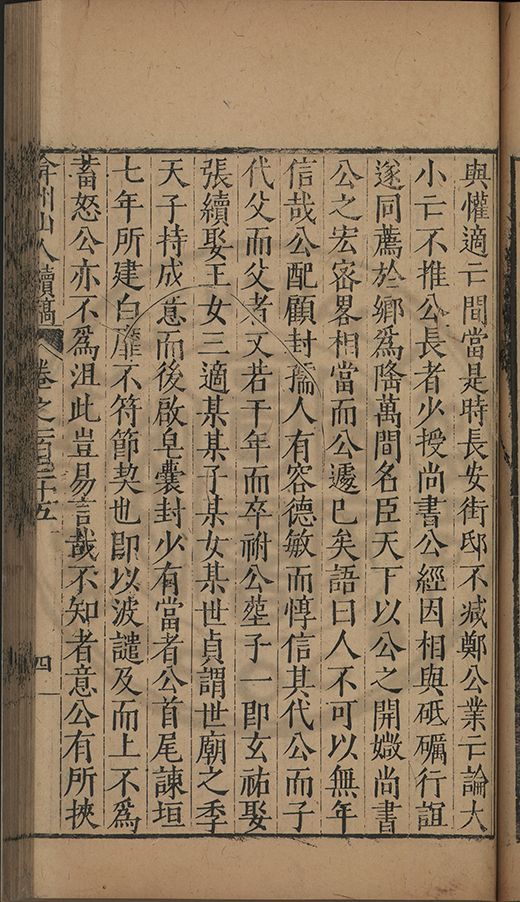 與懽適亡間當是時長安街邸不減鄭公業亡論大
小亡不推公長者少授尚書公經因相與砥礪行誼
遂同薦於鄉爲隆萬間名臣天下以公之開媺尚書
公之宏密畧相當而公遽已矣語曰人不可以無年
信哉公配顧封孺人有容德敏而惇信其代公而子
代父而父者又若干年而卒祔公塋子一即玄祐娶
張續娶王女三適某某子某女某世貞謂世廟之季
天子持成意而後啟皂囊封少有當者公首尾諫垣
七年所建白靡不符節契也即以波譴及而上不爲
蓄怒公亦不爲沮此豈易言哉不知者意公有所挾
弇州山人續稿 卷之 十五 四